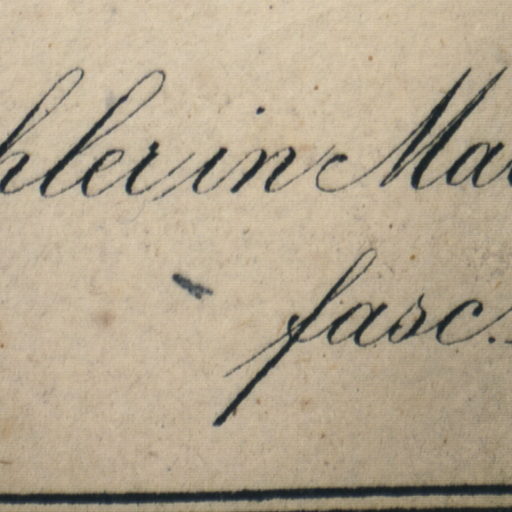 hler in Ma
fasc.